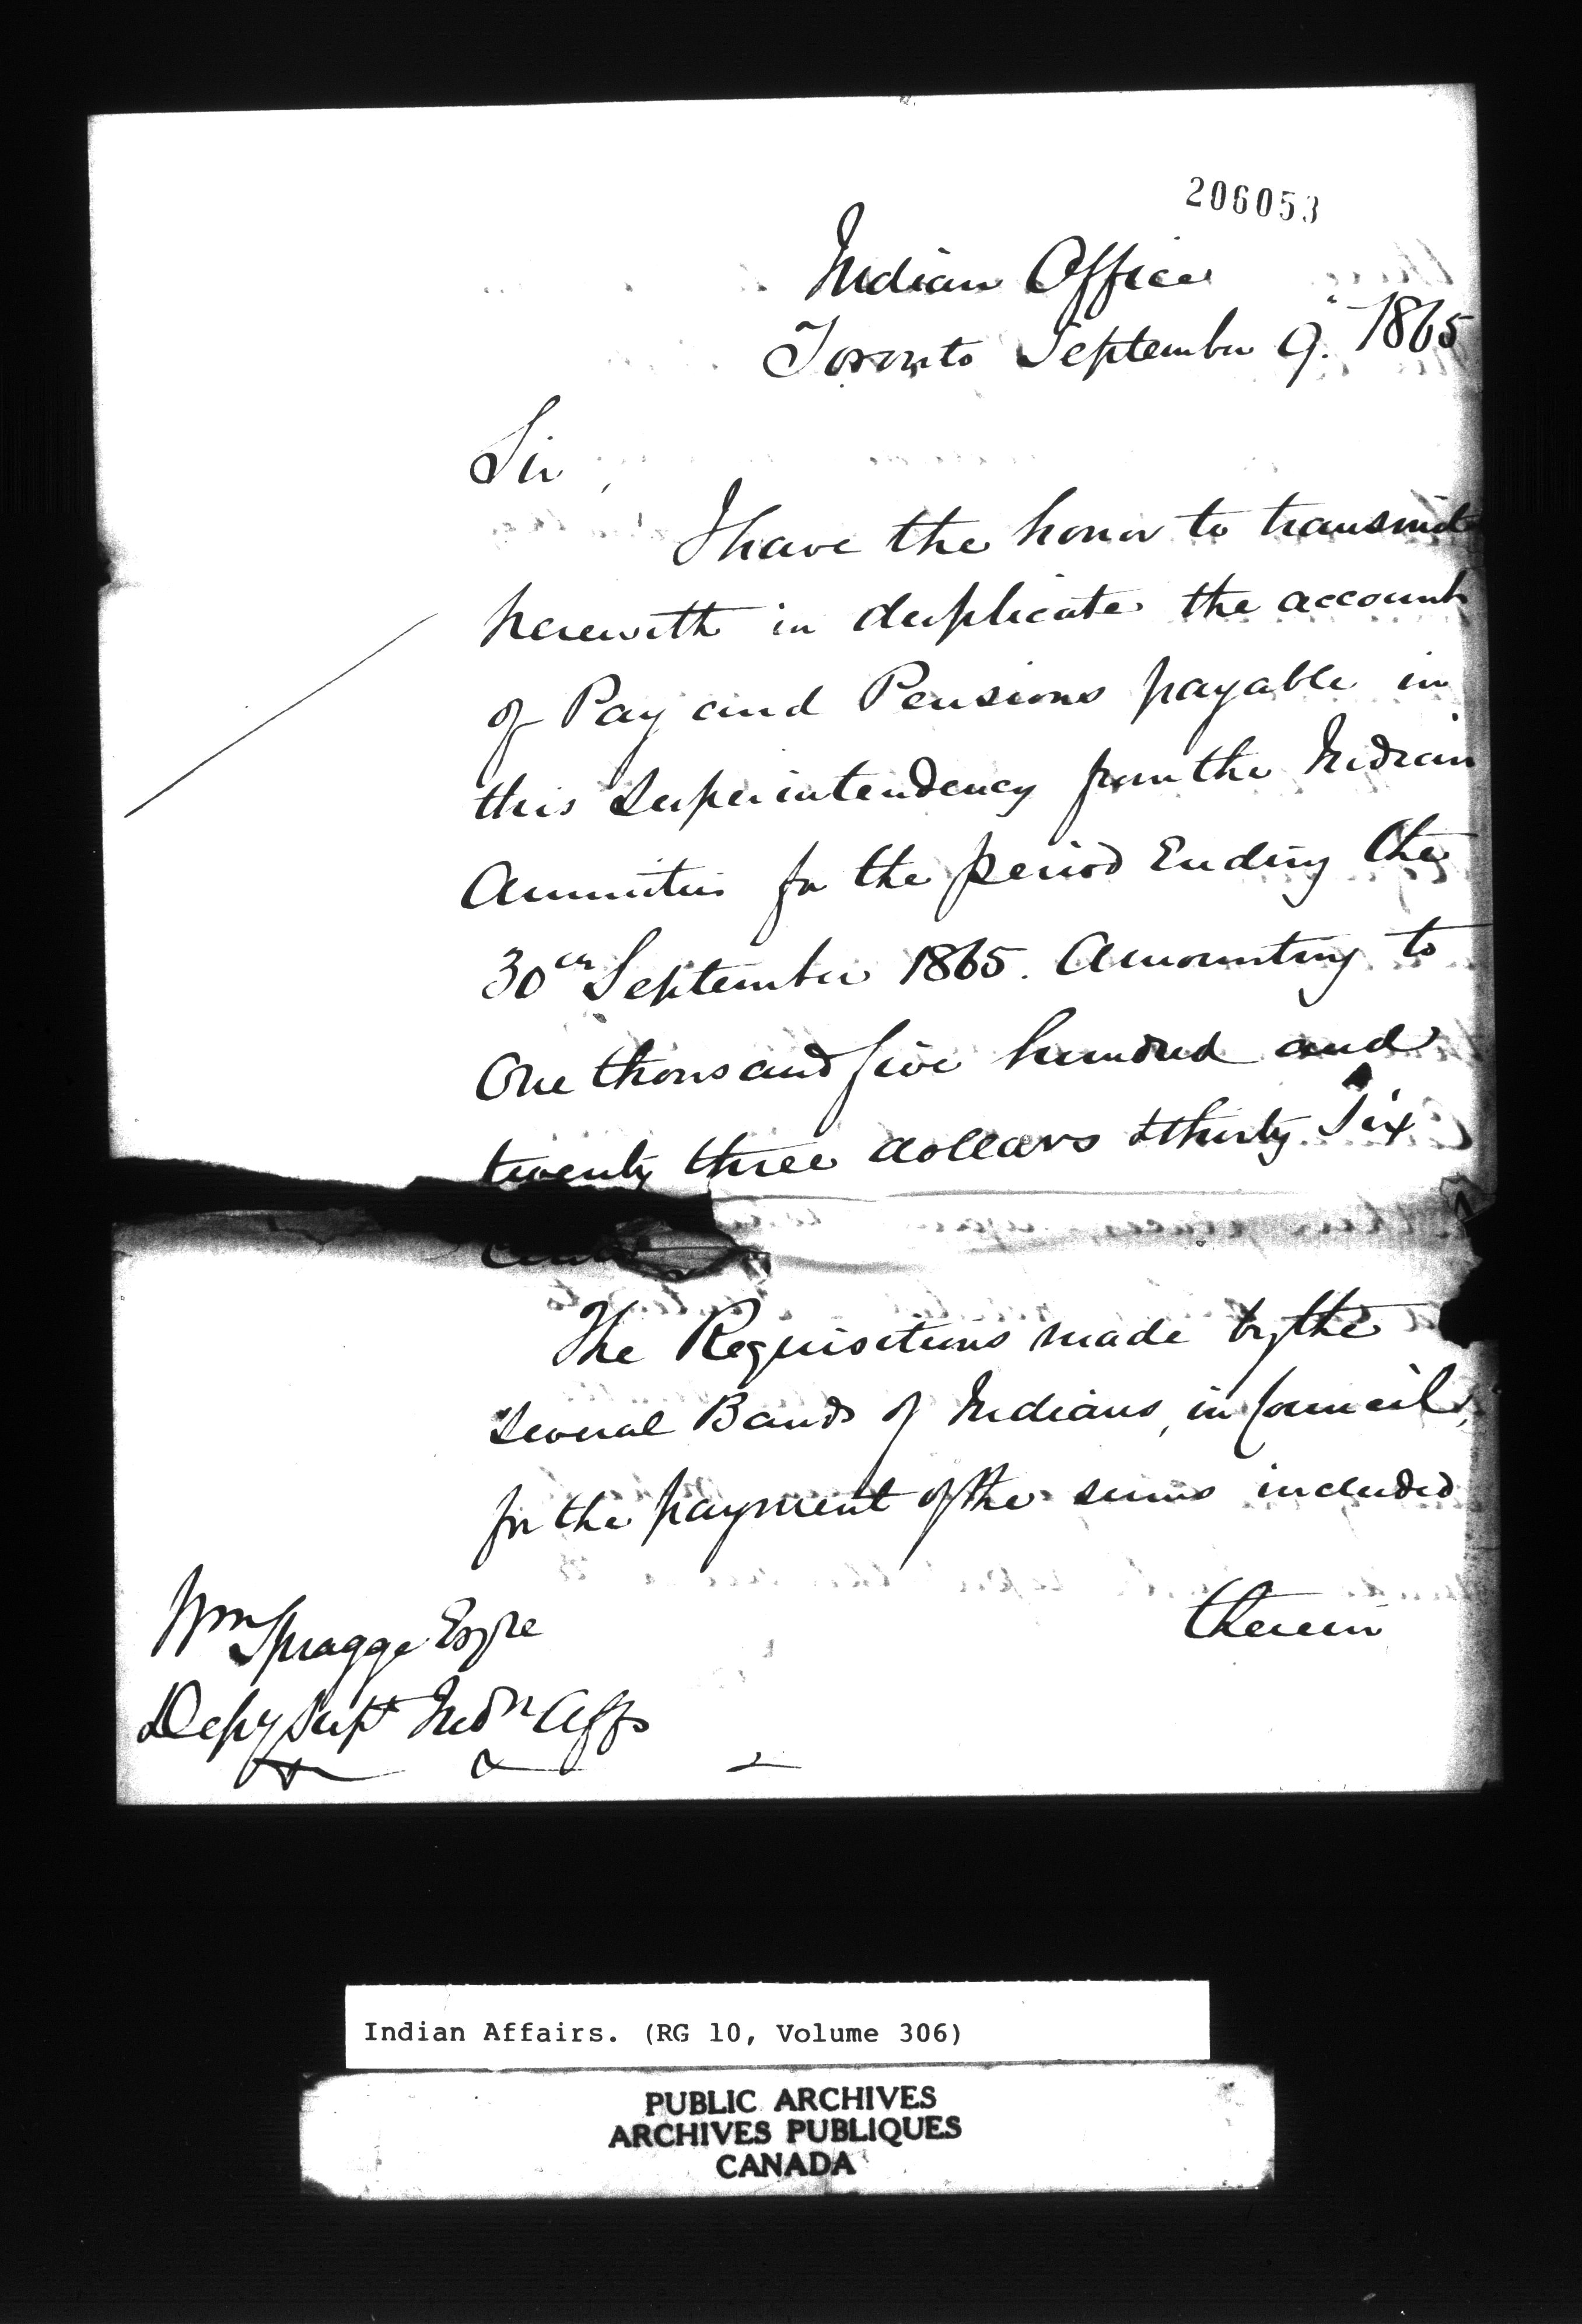 206053
Indian Office
Toronto September 9th 1865
Sir,
I have the honor to transmit
herewith in duplicate the account
of Pay and Pensions payable in
this Superintendency from the Indian
Annuities for the period Ending the
30th September 1865. Amounting to
One thousand five hundred and
twenty three dollars & thirty Six
Cents
The Requisitions made by the
several Bands of Indians, in Council,
for the payment of the sums included
therein
Wm Spragge Esqre
Depy Supt Indn Affs
Indian Affairs. (RG 10, Volume 306)
PUBLIC ARCHIVES
ARCHIVES PUBLIQUES
CANADA